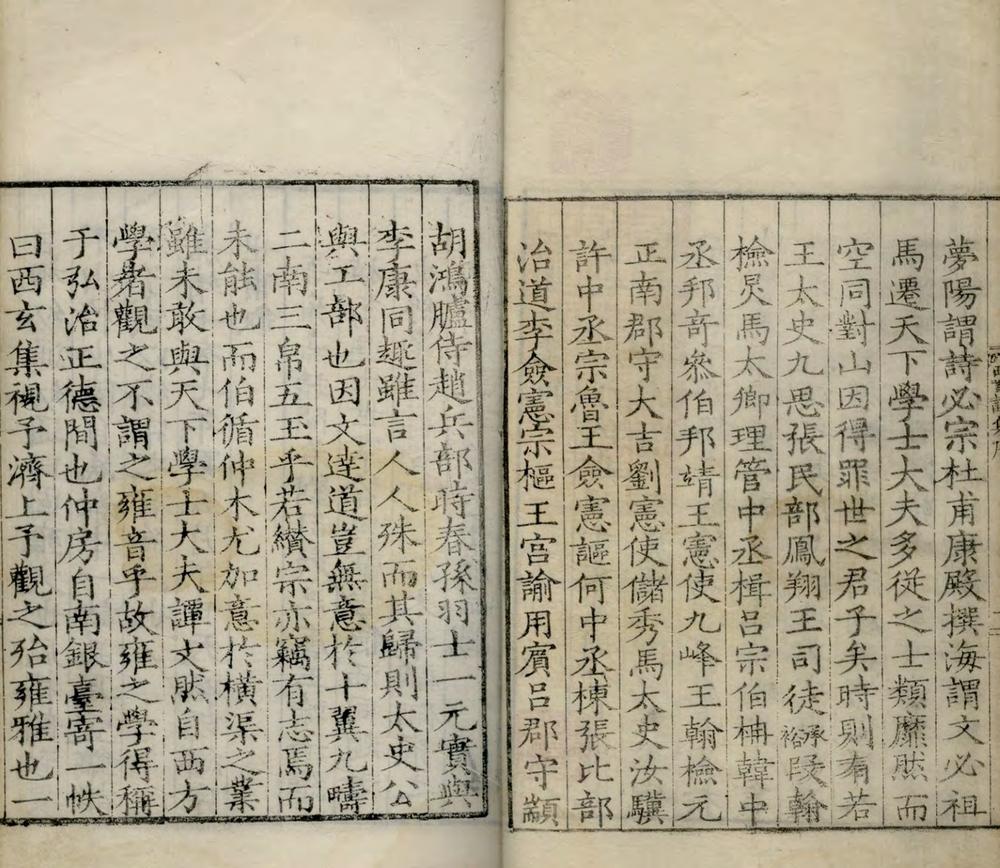 夢陽謂詩必宗杜甫康殿撰海謂文必祖
馬遷天下學士大夫多從之士類靡然而
空同對山因得罪世之君子矣時則有若
王太史九思張民部鳳翔王司徒承裕段翰
檢炅馬太卿理管中丞楫呂宗伯柟韓中
丞邦奇叅伯邦靖王憲使九峰王翰檢元
正南郡守大吉劉憲使儲秀馬太史汝驥
許中丞宗魯王僉憲謳何中丞棟張比部
治道李僉憲宗樞王宫諭用賓呂郡守顓
胡鴻臚侍趙兵部時春孫羽士一元實與
李康同趣雖言人人殊而其歸則太史公
與工部也因文達道豈無意於十翼九疇
二南三帛五玉乎若纘宗亦竊有志焉而
未能也而伯循仲木尤加意於橫渠之業
雖未敢與天下學士大夫譚文然自西方
學者觀之不謂之雍音乎故雍之學得稱
于弘治正德間也仲房自南銀臺寄一帙
曰西玄集視予濟上予觀之殆雍雅也一